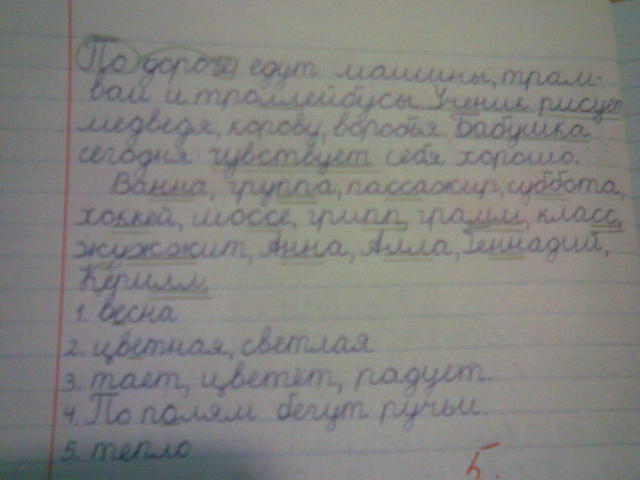 По дороге едут машины, трам-
ваи и троллейбусы. Ученик рисует
медведя, корову, воробья. Бабушка
сегодня чувствует себя хорошо.
Ванна, группа, пассажир, суббота,
хоккей, шоссе, грипп, грамм, класс,
жужжит, Анна, Алла, Геннадий,
Кирилл.
1. весна
2. цветная, светлая
3. тает, цветет, радует.
4. По полям бегут ручьи.
5. тепло
5.